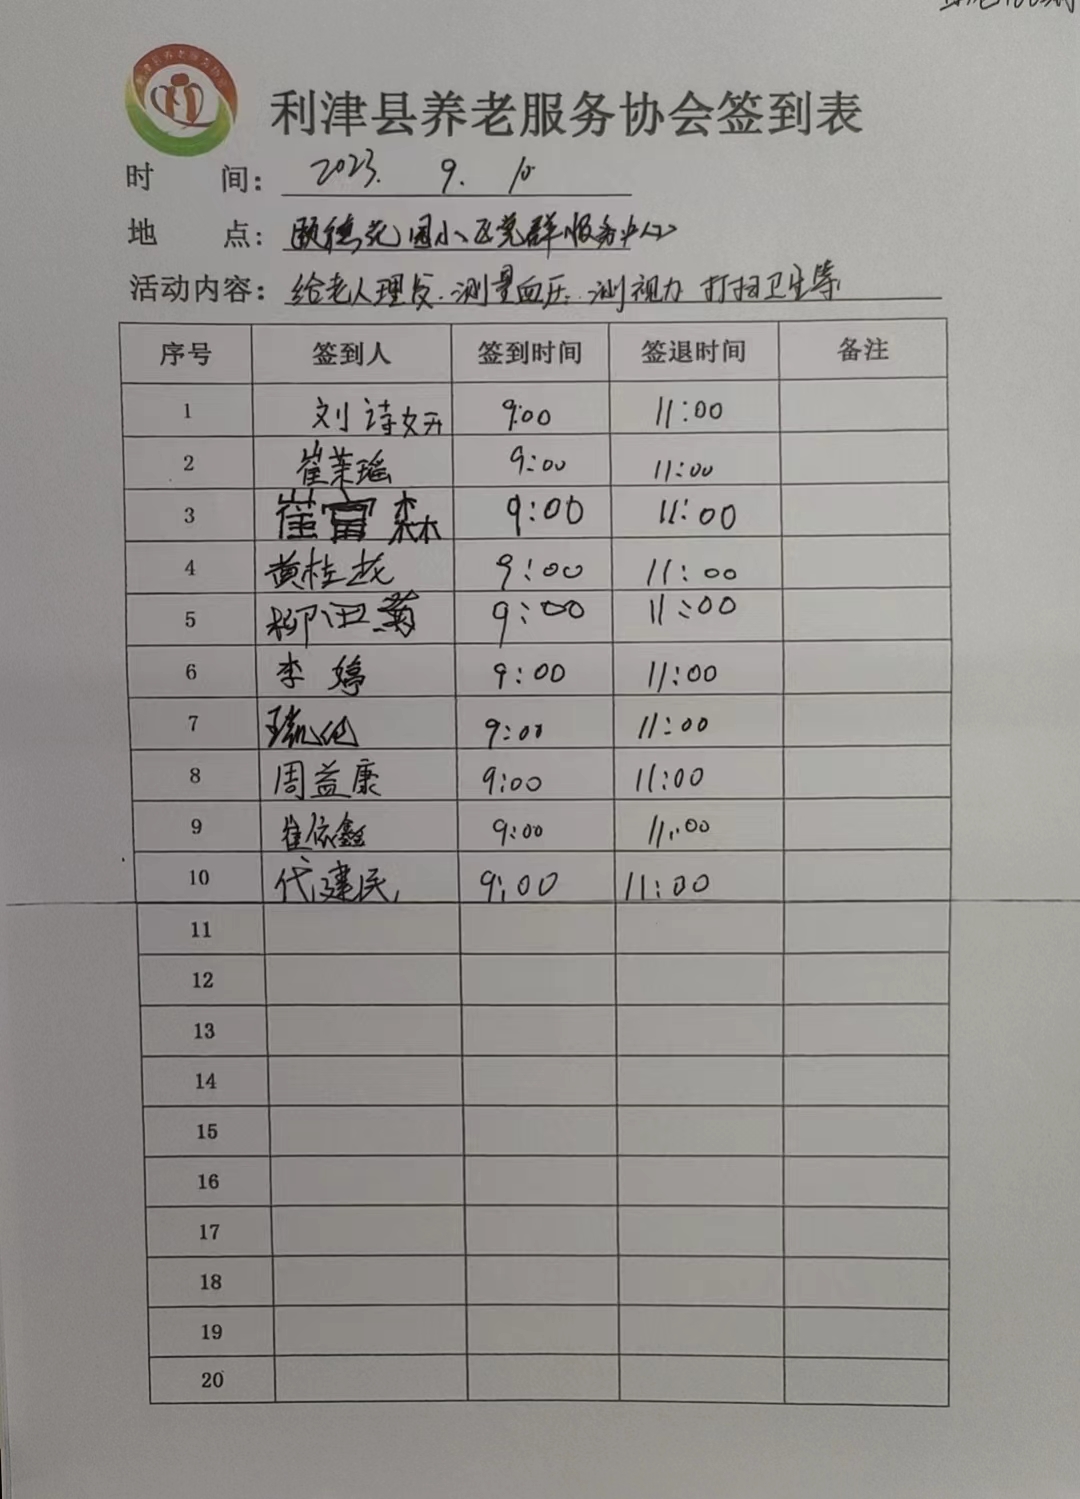 利津县养老服务协会签到表
时 间: 2023. 9. 10
地 点: 颐德花园小区党群服务中心
活动内容: 给老人理发.测量血压.测视力 打扫卫生等
序号 签到人 签到时间 签退时间 备注
1 刘诗妍 9:00 11:00
2 崔茉瑶 9:00 11:00
3 崔富森 9:00 11:00
4 黄桂花 9:00 11:00
5 柳田菊 9:00 11:00
6 李婷 9:00 11:00
7 9:00 11:00
8 周益康 9:00 11:00
9 崔依鑫 9:00 11:00
10 代建民 9:00 11:00
11
12
13
14
15
16
17
18
19
20